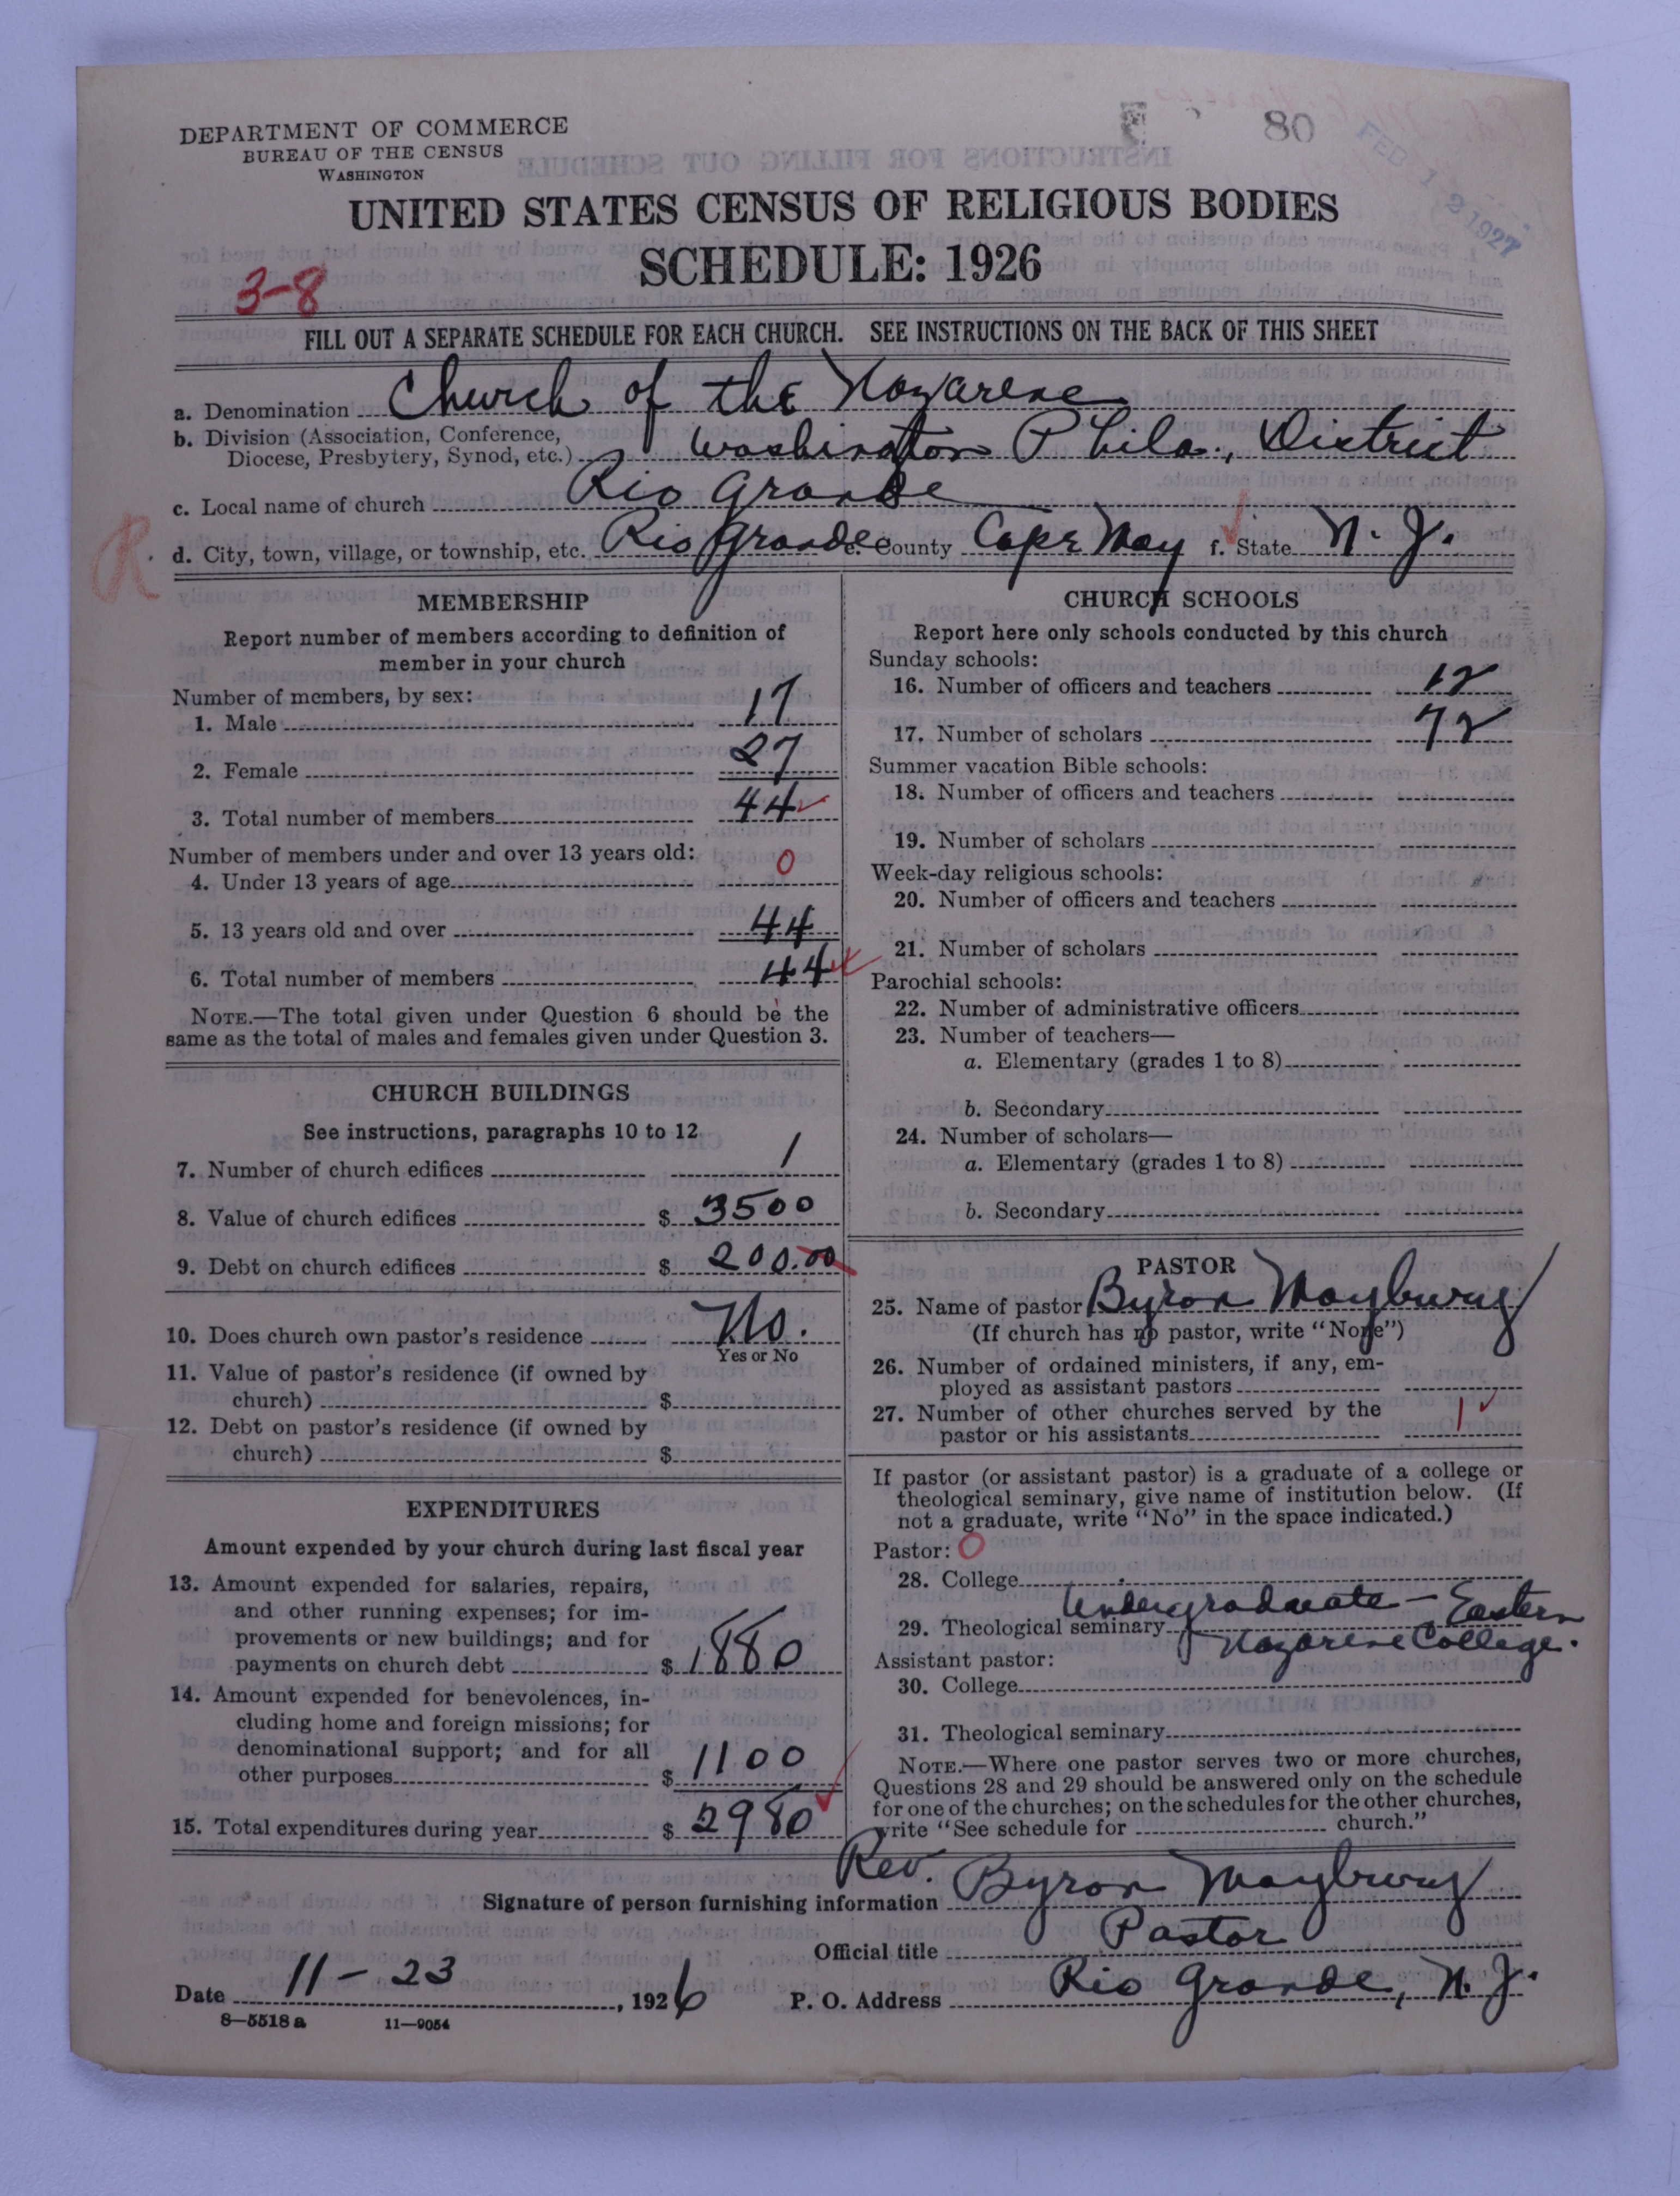 DEPARTMENT OF COMMERCE
BUREAU OF THE CENSUS
WASHINGTON
80
FEB 1 2 1927
UNITED STATES CENSUS OF RELIGIOUS BODIES
SCHEDULE: 1926
3-8
FILL OUT A SEPARATE SCHEDULE FOR EACH CHURCH. SEE INSTRUCTIONS ON THE BACK OF THIS SHEET
a. Denomination Church of the Nazarene
b. Division (Association, Conference, Diocese, Presbytery, Synod, etc.) Washington Phila., District
c. Local name of church Rio Grande
R
d. City, town, village, or township, etc. Rio Grande e. County Cape May f. State N. J.
MEMBERSHIP
Report number of members according to definition of
member in your church
Number of members, by sex:
1. Male 17
2. Female 27
3. Total number of members 44
Number of members under and over 13 years old:
4. Under 13 years of age 0
5. 13 years old and over 44
6. Total number of members 44
NOTE.—The total given under Question 6 should be the
same as the total of males and females given under Question 3.
CHURCH BUILDINGS
See instructions, paragraphs 10 to 12
7. Number of church edifices 1
8. Value of church edifices $ 3500
9. Debt on church edifices $ 200.00
10. Does church own pastor's residence No.
Yes or No
11. Value of pastor's residence (if owned by
church) $
12. Debt on pastor's residence (if owned by
church) $
EXPENDITURES
Amount expended by your church during last fiscal year
13. Amount expended for salaries, repairs,
and other running expenses; for im-
provements or new buildings; and for
payments on church debt $ 1880
14. Amount expended for benevolences, in-
cluding home and foreign missions; for
denominational support; and for all
other purposes $ 1100
15. Total expenditures during year $ 2980
CHURCH SCHOOLS
Report here only schools conducted by this church
Sunday schools:
16. Number of officers and teachers 12
17. Number of scholars 72
Summer vacation Bible schools:
18. Number of officers and teachers
19. Number of scholars
Week-day religious schools:
20. Number of officers and teachers
21. Number of scholars
Parochial schools:
22. Number of administrative officers
23. Number of teachers—
a. Elementary (grades 1 to 8)
b. Secondary
24. Number of scholars—
a. Elementary (grades 1 to 8)
b. Secondary
PASTOR
25. Name of pastor Byron Maybury
(If church has no pastor, write "None")
26. Number of ordained ministers, if any, em-
ployed as assistant pastors
27. Number of other churches served by the
pastor or his assistants 1
If pastor (or assistant pastor) is a graduate of a college or
theological seminary, give name of institution below. (If
not a graduate, write "No" in the space indicated.)
Pastor: 0
28. College
29. Theological seminary Undergraduate — Eastern
Nazarene College.
Assistant pastor:
30. College
31. Theological seminary
NOTE.—Where one pastor serves two or more churches,
Questions 28 and 29 should be answered only on the schedule
for one of the churches; on the schedules for the other churches,
write "See schedule for church."
Signature of person furnishing information Rev. Byron Maybury
Official title Pastor
Date 11 - 23, 1926 P. O. Address Rio Grande, N. J.
8—5518 a 11—9054